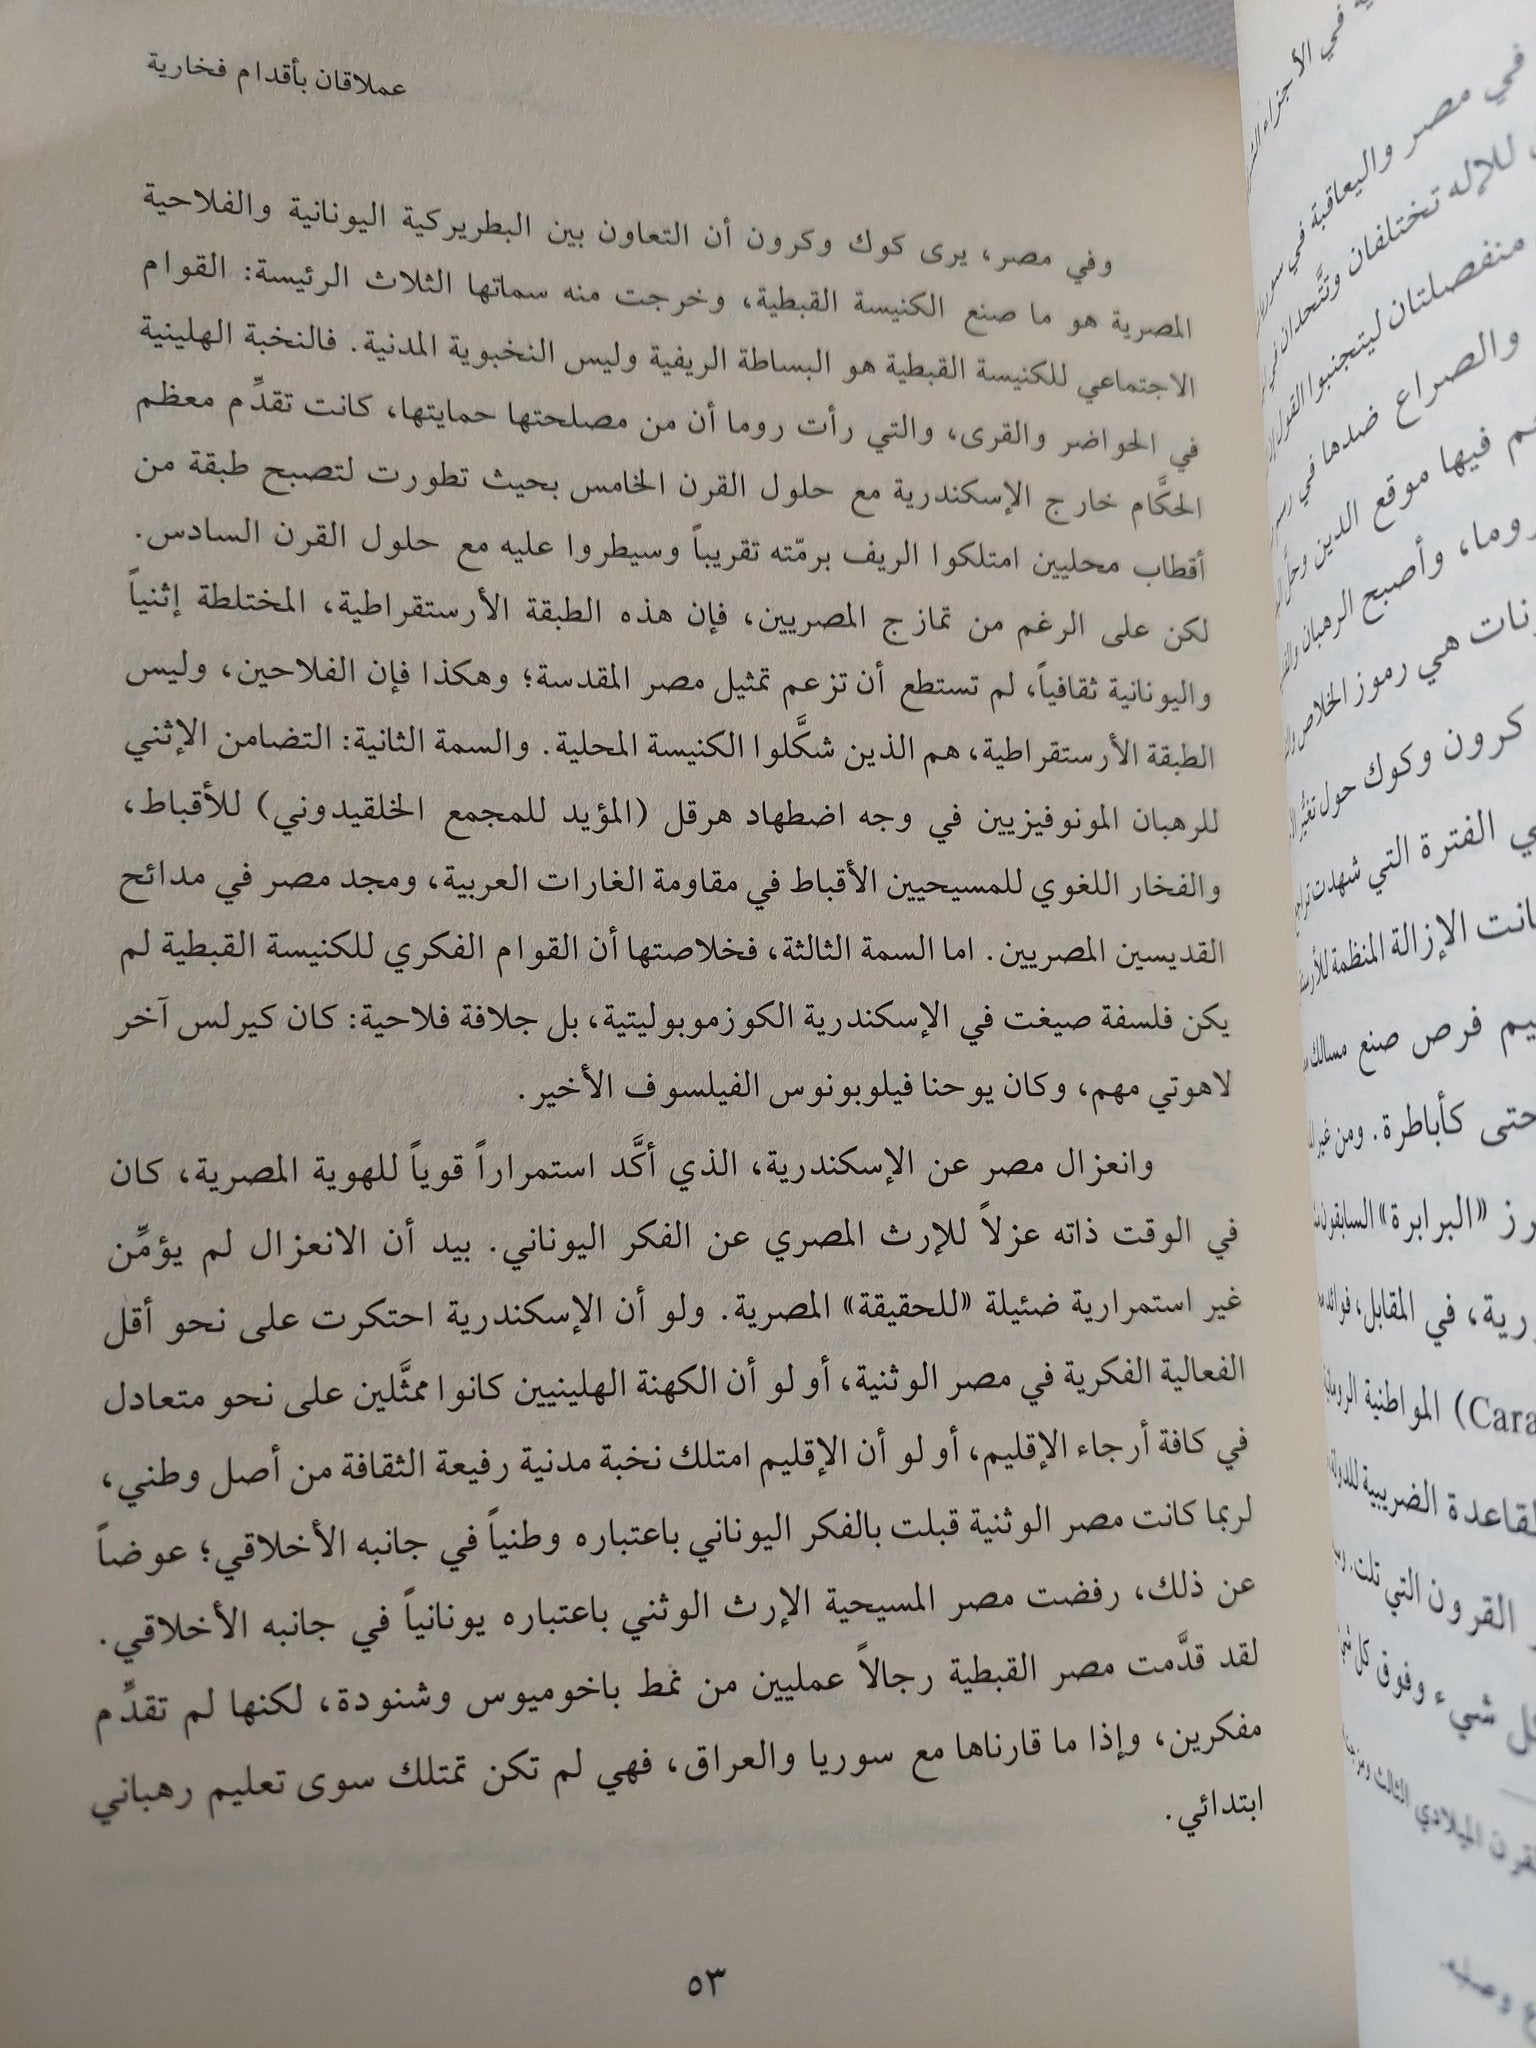 عملاقان بأقدام فخارية
وفي مصر، يرى كوك وكرون أن التعاون بين البطريركية اليونانية والفلاحية
المصرية هو ما صنع الكنيسة القبطية، وخرجت منه سماتها الثلاث الرئيسة: القوام
الاجتماعي للكنيسة القبطية هو البساطة الريفية وليس النخبوية المدنية. فالنخبة الهلينية
في الحواضر والقرى، والتي رأت روما أن من مصلحتها حمايتها، كانت تقدِّم معظم
الحكَّام خارج الإسكندرية مع حلول القرن الخامس بحيث تطورت لتصبح طبقة من
أقطاب محليين امتلكوا الريف برمّته تقريباً وسيطروا عليه مع حلول القرن السادس.
لكن على الرغم من تمازج المصريين، فإن هذه الطبقة الأرستقراطية، المختلطة إثنياً
واليونانية ثقافياً، لم تستطع أن تزعم تمثيل مصر المقدسة؛ وهكذا فإن الفلاحين، وليس
الطبقة الأرستقراطية، هم الذين شكَّلوا الكنيسة المحلية. والسمة الثانية: التضامن الإثني
للرهبان المونوفيزيين في وجه اضطهاد هرقل (المؤيد للمجمع الخلقيدوني) للأقباط،
والفخار اللغوي للمسيحيين الأقباط في مقاومة الغارات العربية، ومجد مصر في مدائح
القديسين المصريين. اما السمة الثالثة، فخلاصتها أن القوام الفكري للكنيسة القبطية لم
يكن فلسفة صيغت في الإسكندرية الكوزموبوليتية، بل جلافة فلاحية: كان كيرلس آخر
لاهوتي مهم، وكان يوحنا فيلوبونوس الفيلسوف الأخير.
وانعزال مصر عن الإسكندرية، الذي أكَّد استمراراً قوياً للهوية المصرية، كان
في الوقت ذاته عزلاً للإرث المصري عن الفكر اليوناني. بيد أن الانعزال لم يؤمِّن
غير استمرارية ضئيلة «للحقيقة» المصرية. ولو أن الإسكندرية احتكرت على نحو أقل
الفعالية الفكرية في مصر الوثنية، أو لو أن الكهنة الهلينيين كانوا ممثَّلين على نحو متعادل
في كافة أرجاء الإقليم، أو لو أن الإقليم امتلك نخبة مدنية رفيعة الثقافة من أصل وطني،
لربما كانت مصر الوثنية قبلت بالفكر اليوناني باعتباره وطنياً في جانبه الأخلاقي؛ عوضاً
عن ذلك، رفضت مصر المسيحية الإرث الوثني باعتباره يونانياً في جانبه الأخلاقي.
لقد قدَّمت مصر القبطية رجالاً عمليين من نمط باخوميوس وشنودة، لكنها لم تقدِّم
مفكرين، وإذا ما قارناها مع سوريا والعراق، فهي لم تكن تمتلك سوى تعليم رهباني
ابتدائي.
٥٣
في مصر واليعاقبة في
للإله تختلفان وتتَّحدان
منفصلتان ليتجنبوا القول
والصراع ضدها في
فيها موقع الدين وحل
وأصبح الرهبان
هي رموز الخلاص
كرون وكوك حول
الفترة التي شهدت
الإزالة المنظمة
فرص صنع مسالك
حتى كأباطرة. ومن غير
«البرابرة» السابقون
في المقابل، فوائد
(Cara المواطنية
الضريبية للدولة
القرون التي تلت.
شيء وفوق كل
الميلادي الثالث